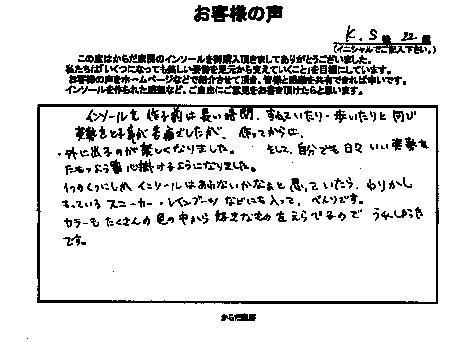 お客様の声
K.S 様 22 歳
(イニシャルでご記入下さい。)
この度はからだ楽房のインソールを御購入頂きましてありがとうございました。
私たちは「いくつになっても美しい姿勢を足元から支えていくこと」を目標にしています。
お客様の声をホームページなどで紹介させて頂き、皆様と感動を共有できれば幸いです。
インソールを作られた感想など、ご自由にご意見をお書き頂けたらと思います。
インソールを作る前は長い時間、すわっていたり・歩いたりと同じ
姿勢をとる事が苦痛でしたが、作ってからは、
・外に出るのが楽しくなりました。 そして、自分でも日々いい姿勢を
たもつよう心掛けるようになりました。
くつにしかインソールはあわないかなぁと思っていたら、わりかし
もっているスニーカー・レインブーツなどにも入って、べんりです。
カラーもたくさんの色の中から好きなものをえらべるので うれしかった
です。
からだ楽房